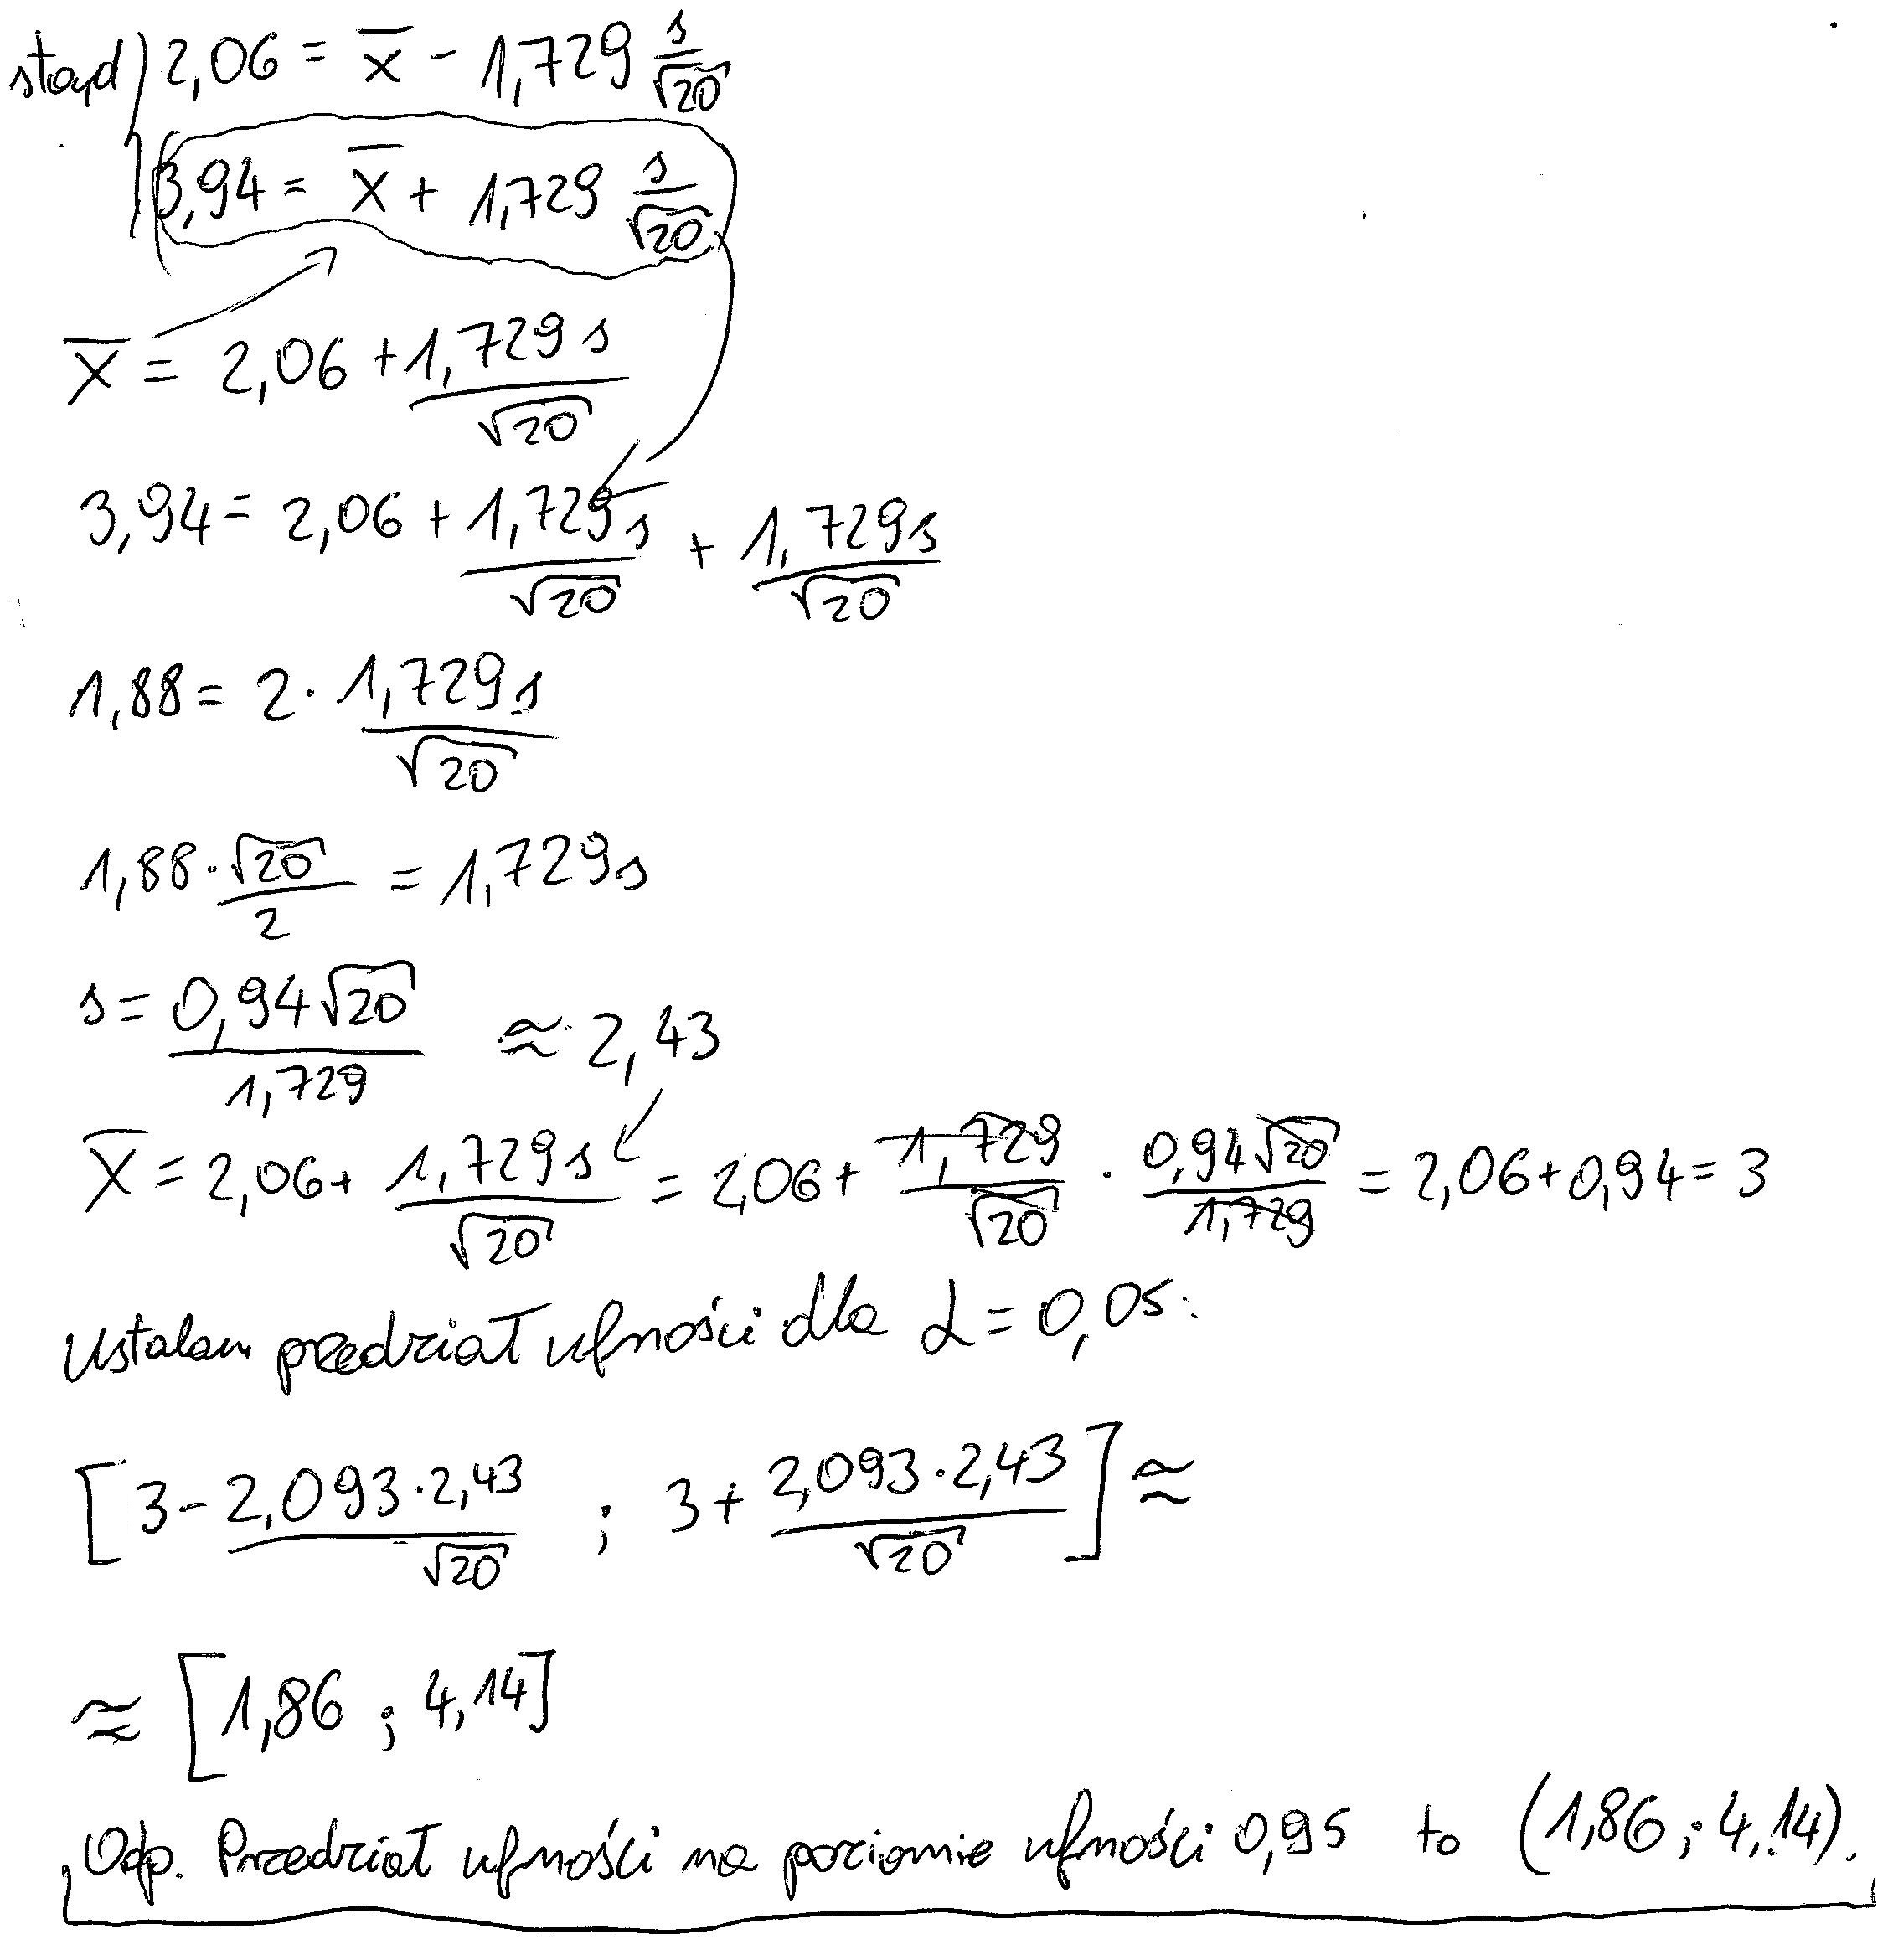 stąd 2,06 = x̅ - 1,729 s/√20
3,94 = x̅ + 1,729 s/√20
x̅ = 2,06 + 1,729s/√20
3,94 = 2,06 + 1,729s/√20 + 1,729s/√20
1,88 = 2 · 1,729s/√20
1,88 · √20/2 = 1,729s
s = 0,94√20/1,729 ≈ 2,43
x̅ = 2,06 + 1,729s/√20 = 2,06 + 1,729/√20 · 0,94√20/1,729 = 2,06 + 0,94 = 3
Ustalam przedział ufności dla α = 0,05:
[3 - 2,093·2,43/√20 ; 3 + 2,093·2,43/√20] ≈
≈ [1,86 ; 4,14]
Odp. Przedział ufności na poziomie ufności 0,95 to (1,86 ; 4,14).